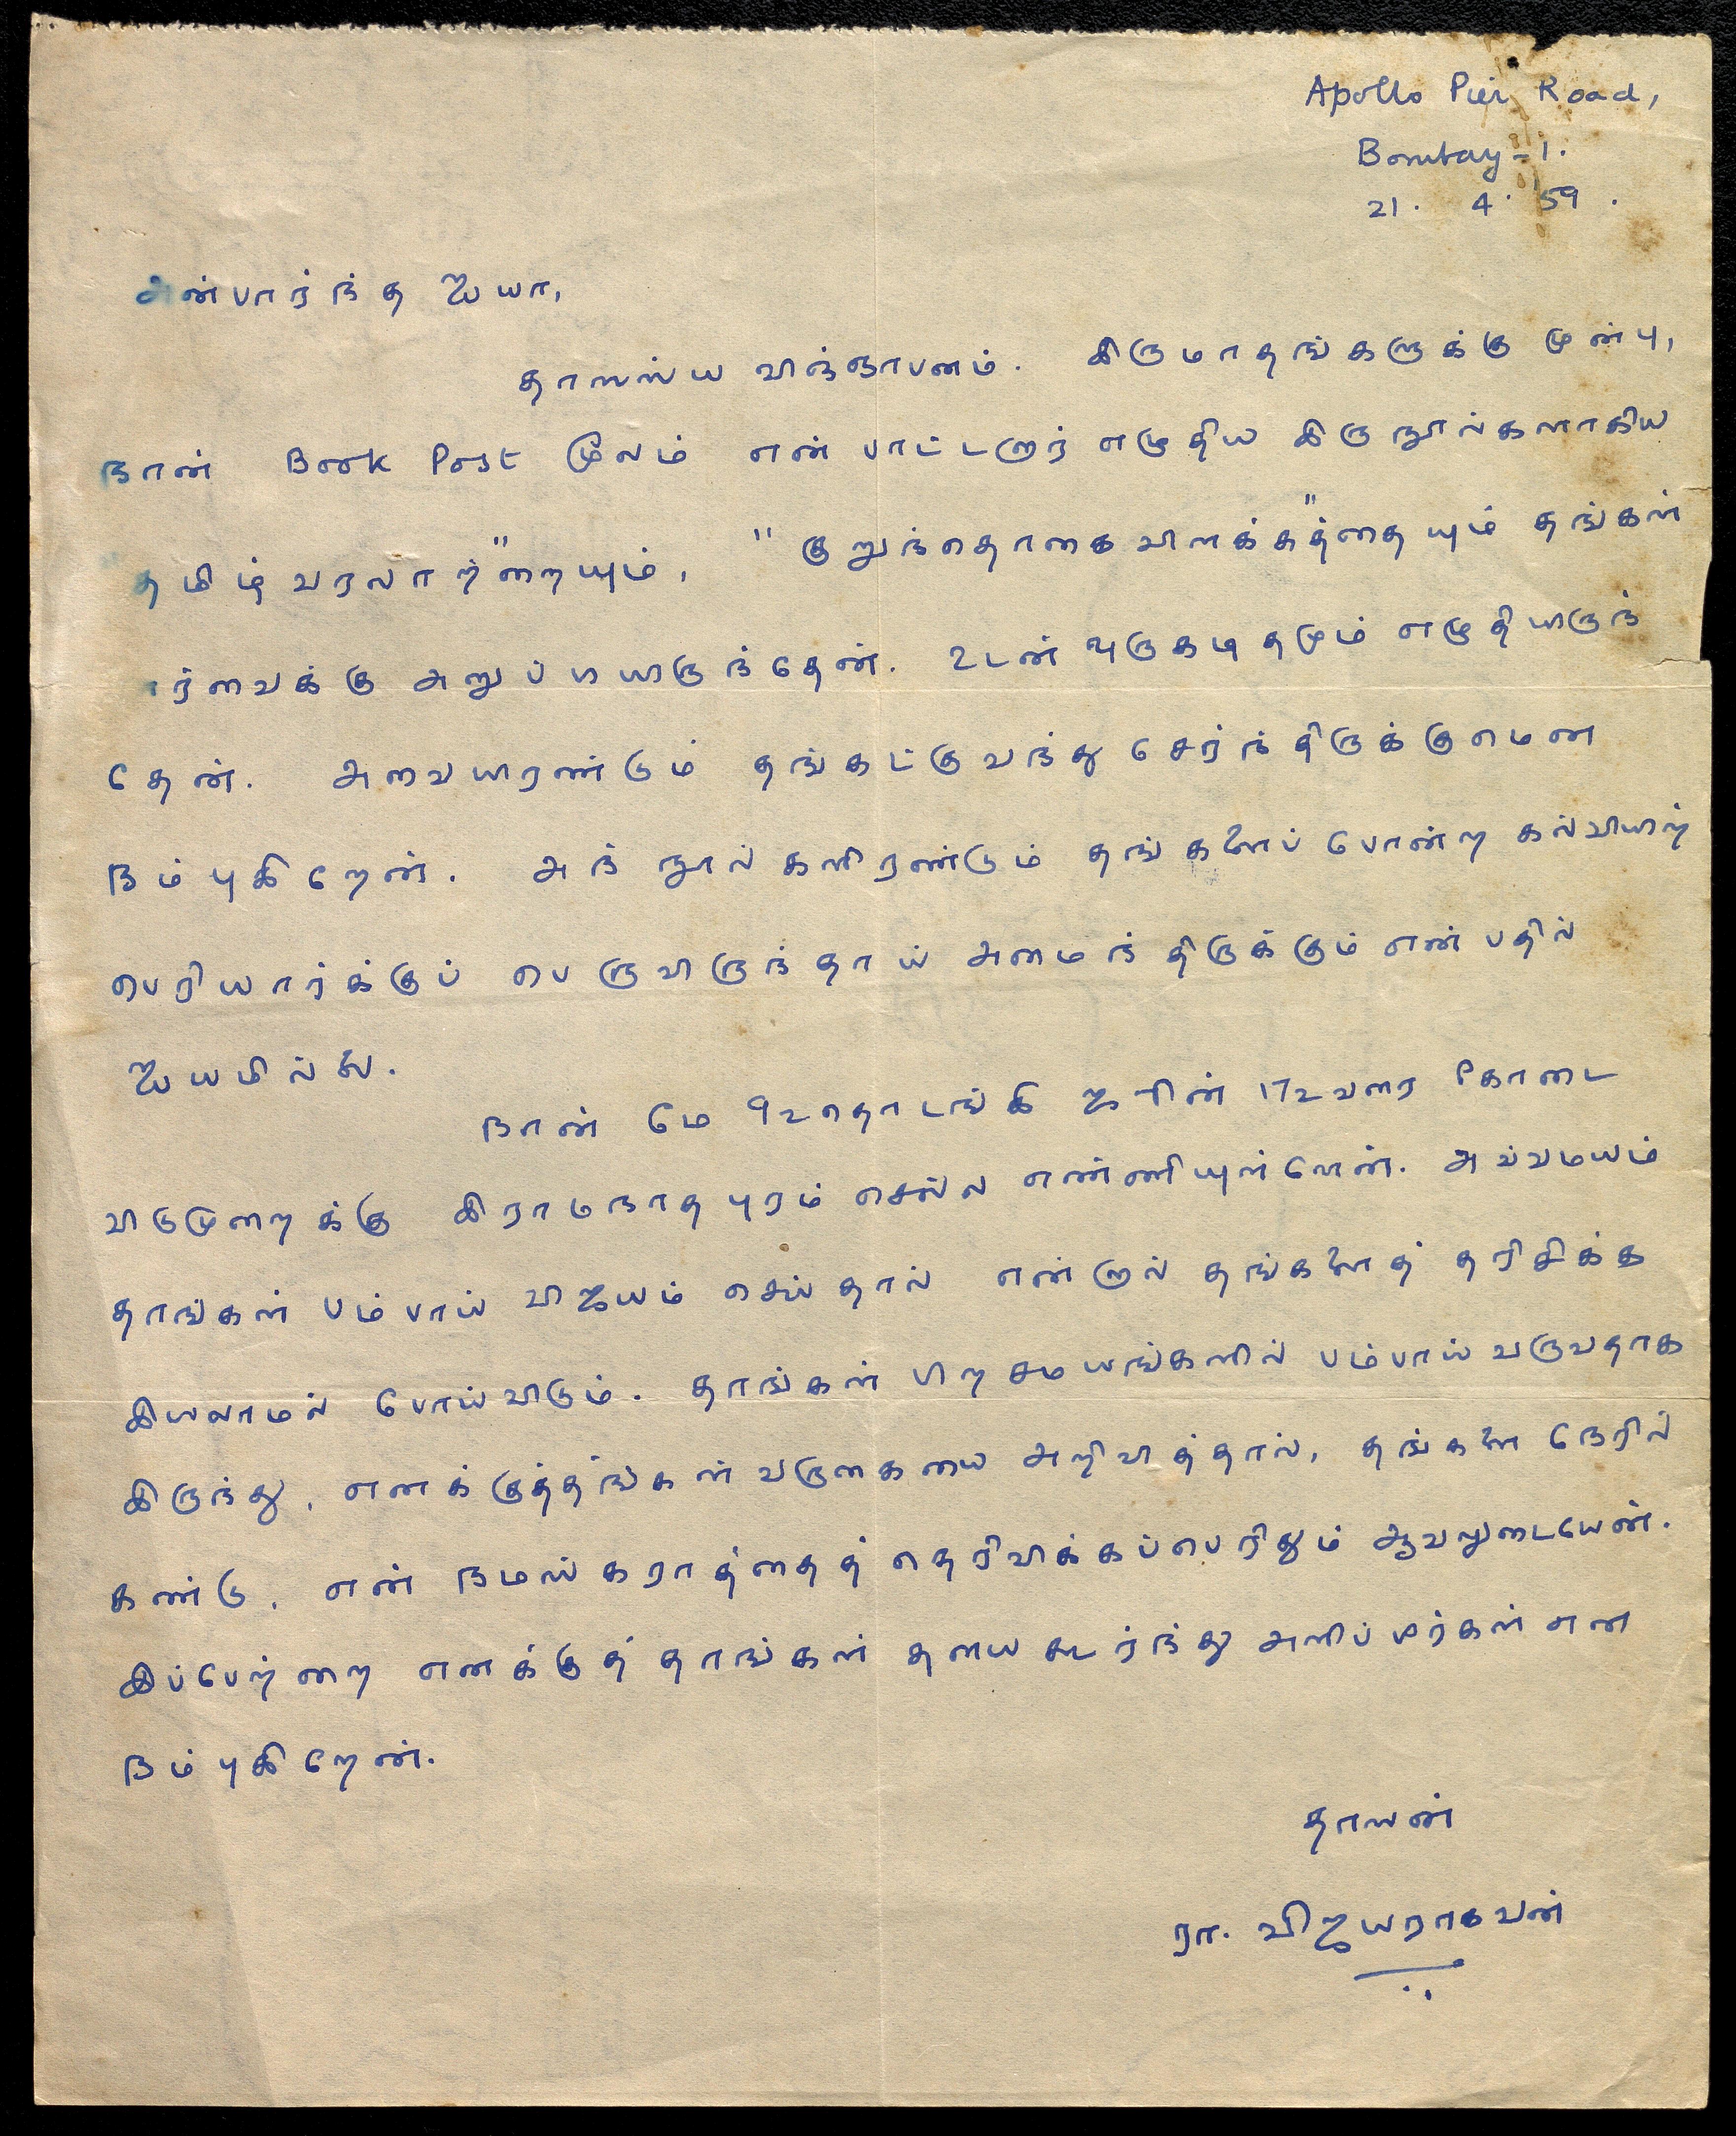 Apollo Pier Road,
Bombay - 1.
21. 4. '59.
அன்பார்ந்த ஐயா,
தாஸஸ்ய விஞ்ஞாபனம். இருமாதங்களுக்கு முன்பு,
நான் Book Post மூலம் என் பாட்டனார் எழுதிய இரு நூல்களாகிய
தமிழ் வரலாற்"றையும், "குறுந்தொகை விளக்க"த்தையும் தங்கள்
பார்வைக்கு அனுப்பியிருந்தேன். உடன் ஒரு கடிதமும் எழுதியிருந்
தேன். அவையிரண்டும் தங்கட்கு வந்து சேர்ந்திருக்குமென
நம்புகிறேன். அந் நூல்களிரண்டும் தங்களைப் போன்ற கல்வியிற்
பெரியார்க்குப் பெருவிருந்தாய் அமைந்திருக்கும் என்பதில்
ஐயமில்லை.
நான் மே 9உ தொடங்கி ஜூன் 17உ வரை கோடை
விடுமுறைக்கு இராமநாதபுரம் செல்ல எண்ணியுள்ளேன். அவ்வமயம்
தாங்கள் பம்பாய் விஜயம் செய்தால் என்னால் தங்களைத் தரிசிக்க
இயலாமல் போய்விடும். தாங்கள் பிற சமயங்களில் பம்பாய் வருவதாக
இருந்து, எனக்குத்தங்கள் வருகையை அறிவித்தால், தங்களை நேரில்
கண்டு, என் நமஸ்கராத்தைத் தெரிவிக்கப்பெரிதும் ஆவலுடையேன்.
இப்பேற்றை எனக்குத் தாங்கள் தயை கூர்ந்து அளிப்பீர்கள் என
நம்புகிறேன்.
தாஸன்
ரா. விஜயராகவன்